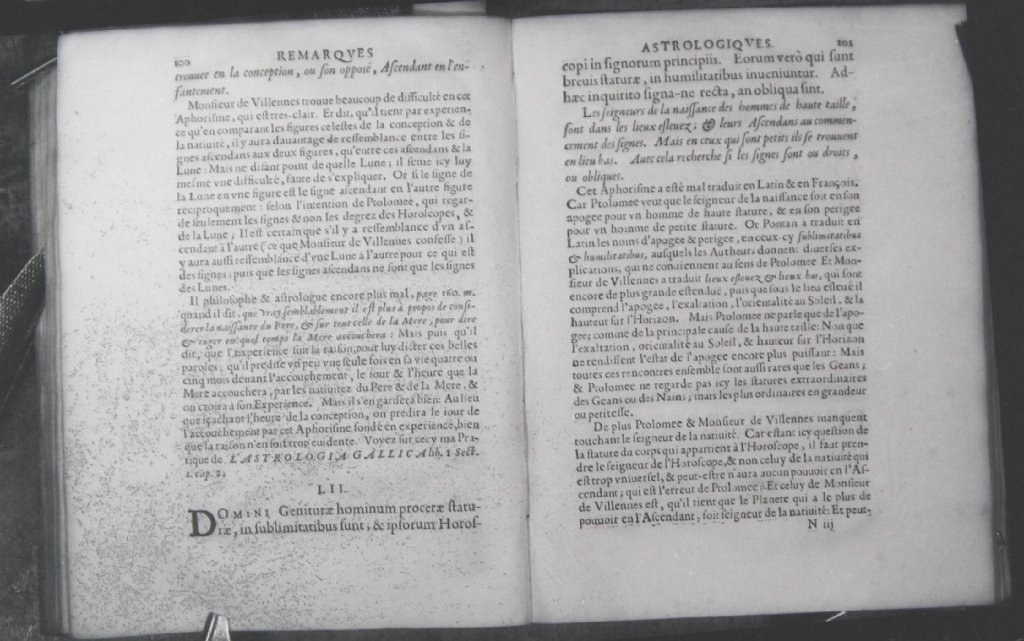 100 REMARQVES
trouuee en la conception, ou son opposé, Ascendant en l'en-
fantement.
Monsieur de Villennes trouue beaucoup de difficulté en cet
Aphorisme, qui est tres-clair. Et dit, qu'il tient par experien-
ce qu'en comparant les figures celestes de la conception & de
la natiuité, il y aura dauantage de ressemblance entre les si-
gnes ascendans aux deux figures, qu'entre ces ascendans & la
Lune: Mais ne disant point de quelle Lune; il seme icy luy
mesme vne difficulté, faute de s'expliquer. Or si le signe de
la Lune en vne figure est le signe ascendant en l'autre figure
reciproquement: selon l'intention de Ptolomee, qui regar-
de seulement les signes & non les degrez des Horoscopes, &
de la Lune; Il est certain que s'il y a ressemblance d'vn as-
cendant à l'autre (ce que Monsieur de Villennes confesse) il
y aura aussi ressemblance d'vne Lune à l'autre pour ce qui est
des signes; puis que les signes ascendans ne sont que les signes
des Lunes.
Il philosophe & astrologue encore plus mal, page 160. m.
quand il dit, que vray semblablement il est plus à propos de consi-
derer la naissance du Pere, & sur tout celle de la Mere, pour dire
& iuger en quel temps la Mere accouchera: Mais puis qu'il
dit, que l'experience suit la raison, pour luy dicter ces belles
paroles; qu'il predise vn peu vne seule fois en sa vie quatre ou
cinq mois deuant l'accouchement, le iour & l'heure que la
Mere accouchera, par les natiuitez du Pere & de la Mere, &
on croira à son Experience. Mais il s'en gardera bien: Au lieu
que sçachant l'heure de la conception, on predira le iour de
l'accouchement par cet Aphorisme fondé en experience, bien
que la raison n'en soit trop euidente. Voyez sur cecy ma Pra-
tique de L'ASTROLOGIA GALLICA lib. 1 Sect.
1. cap. 2.
LII.
DOMINI Genituræ hominum proceræ statu-
ræ, in sublimitatibus sunt, & ipsorum Horos-
ASTROLOGIQVES. 101
copi in signorum principiis. Eorum verò qui sunt
breuis staturæ, in humilitatibus inueniuntur. Ad-
hæc inquirito signa-ne recta, an obliqua sint.
Les seigneurs de la naissance des hommes de haute taille,
sont dans les lieux esleuez; & leurs Ascendans au commen-
cement des signes. Mais en ceux qui sont petits ils se trouuent
en lieu bas. Auec cela recherche si les signes sont ou droits,
ou obliques.
Cet Aphorisme a esté mal traduit en Latin & en François.
Car Ptolomee veut que le seigneur de la naissance soit en son
apogee pour vn homme de haute stature, & en son perigee
pour vn homme de petite stature. Or Pontan à traduit en
Latin les noms d'apogee & perigee, en ceux-cy sublimitatibus
& humilitatibus, ausquels les Autheurs donnent diuerses ex-
plications, qui ne conuiennent au sens de Ptolomee Et Mon-
sieur de Villennes a traduit lieux esleuez & lieux bas, qui sont
encore de plus grande estenduë, puis que sous le lieu esleué il
comprend l'apogee, l'exaltation, l'orientalité au Soleil, & la
hauteur sur l'Horizon. Mais Ptolomee ne parle que de l'apo-
gee; comme de la principale cause de la haute taille: Non que
l'exaltation, orientalité au Soleil, & hauteur sur l'Horizon
ne rendissent l'estat de l'apogee encore plus puissant: Mais
toutes ces rencontres ensemble sont aussi rares que les Geans;
& Ptolomee ne regarde pas icy les statures extraordinaires
des Geans ou des Nains; mais les plus ordinaires en grandeur
ou petitesse.
De plus Ptolomee & Monsieur de Villennes manquent
touchant le seigneur de la natiuité. Car estant icy question de
la stature du corps qui appartient à l'Horoscope, il faut pren-
dre le seigneur de l'Horoscope, & non celuy de la natiuité qui
est trop vniuersel, & peut-estre n'aura aucun pouuoir en l'As-
cendant; qui est l'erreur de Ptolomee: Et celuy de Monsieur
de Villennes est, qu'il tient que le Planete qui a le plus de
pouuoir en l'Ascendant, soit seigneur de la natiuité: Et peut-
N iij